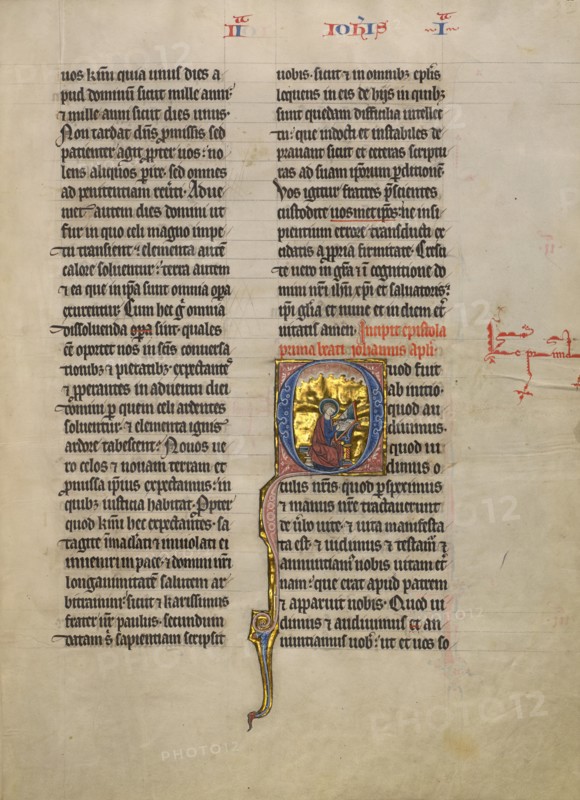 II Ioh'is I
uos kīmi quia unus dies a
pud dominum sicut mille anni
⁊ mille anni sicut dies unus·
Non tardat dñs p̄missis sed
patienter agit ꝓpter uos: no
lens aliquos ꝑire· sed omnes
ad penitentiam reuti· Adue
niet autem dies domini ut
fur in quo celi magno impe
tu transient· ⁊ elementa autē
calore soluentur: terra autem
⁊ ea que in ip̄a sunt omnia oꝑa
exurentur· Cum hec g̊ omnia
dissoluenda sunt· quales
cē oportet uos in scīs conuersa
tionibȝ ⁊ pietatibȝ expectantes
⁊ ꝓperantes in aduentū diei
domini ꝑ quem celi ardentes
soluentur· ⁊ elementa ignis
ardore tabescent: Nouos ue
ro celos ⁊ nouam terram et
ꝓmissa ip̄ius expectamus· in
quibȝ iusticia habitat· Propter
quod kīmi hec expectantes· sa
tagite īmaclati ⁊ inuiolati ei
inueniri in pace· ⁊ domini nr̄i
longanimitatē salutem ar
bitramini· sicut ⁊ karissimus
frater nr̄ paulus· secundum
datam sapientiam scripsit
uobis· sicut ⁊ in omnibȝ ep̄lis
loquens in eis de hijs in quibȝ
sunt quedam difficilia intellec
tu: que indocti et instabiles de
prauant sicut et ceteras scriptu
ras ad suam ip̄orum ꝑditionē·
Vos igitur fratres p̄scientes
custodite uosmetip̄os: ne insi
pientium errore transducti ex
cidatis a ꝓpria firmitate· Cresci
te uero in gr̄a ⁊ ī cognitione do
mini nr̄i ih̄u xp̄i et saluatoris:
ip̄i gl̄ia et nunc et in diem et̄
nitatis amen· Incipit epistola
prima beati iohannis apl̄i·
Quod fuit
ab initio·
quod au
diuimus·
quod ui
dimus o
culis nr̄is quod ꝑspeximus
⁊ manus nr̄e tractauerunt
de ūbo uite· ⁊ uita manifesta
ta est· ⁊ uidimus ⁊ testam̄ ⁊
annuntiam̄ uobis uitam et̄
nam: que erat apud patrem
⁊ apparuit nobis· Quod ui
dimus ⁊ audiuimus et an
nuntiamus uob̄: ut et uos so
PHOTO12